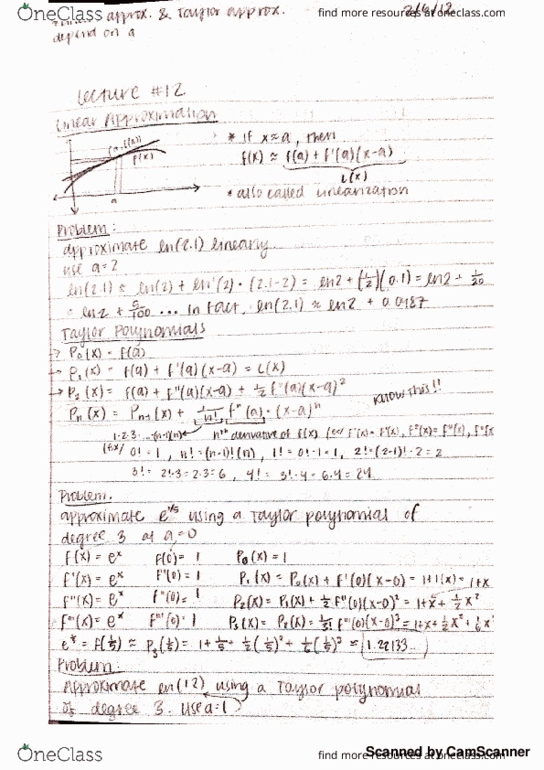 OneClass
find more resources at oneclass.com
approx. & Taylor approx.
depend on a
Lecture #12
Linear Approximation
(a, f(a))
f(x)
a
* if x≈a, then
f(x) ≈ f(a) + f'(a)(x-a)
L(x)
* also called linearization
Problem:
approximate ln(2.1) linearly.
use a=2
ln(2.1) ≈ ln(2) + ln'(2) · (2.1-2) = ln2 + (1/2)(0.1) = ln2 + 1/20
= ln2 + 5/100 ... In fact, ln(2.1) ≈ ln2 + 0.0487
Taylor Polynomials
→ P₀(x) = f(a)
→ P₁(x) = f(a) + f'(a)(x-a) = L(x)
→ P₂(x) = f(a) + f'(a)(x-a) + 1/2 f''(a)(x-a)²
know this!!
Pₙ(x) = Pₙ₋₁(x) + 1/n! fⁿ(a) · (x-a)ⁿ
1·2·3·...(n-1)(n)
nᵗʰ derivative of f(x)
0! = 1, n! = (n-1)!(n), 1! = 0!·1 = 1, 2! = (2-1)!·2 = 2
3! = 2!·3 = 2·3 = 6, 4! = 3!·4 = 6·4 = 24
Problem.
approximate e^1/5 using a Taylor polynomial of
degree 3 at a=0
f(x) = eˣ f(0) = 1 P₀(x) = 1
f'(x) = eˣ f'(0) = 1 P₁(x) = P₀(x) + f'(0)(x-0) = 1+1(x) = 1+x
f''(x) = eˣ f''(0) = 1 P₂(x) = P₁(x) + 1/2 f''(0)(x-0)² = 1+x+1/2x²
f'''(x) = eˣ f'''(0) = 1 P₃(x) = P₂(x) + 1/3! f'''(0)(x-0)³ = 1+x+1/2x²+1/6x³
e^1/5 = f(1/5) ≈ P₃(1/5) = 1+1/5+1/2(1/5)²+1/6(1/5)³ = 1.22133...
Problem:
Approximate ln(1.2) using a Taylor polynomial
of degree 3. Use a=1
Scanned by CamScanner
OneClass
find more resources at oneclass.com